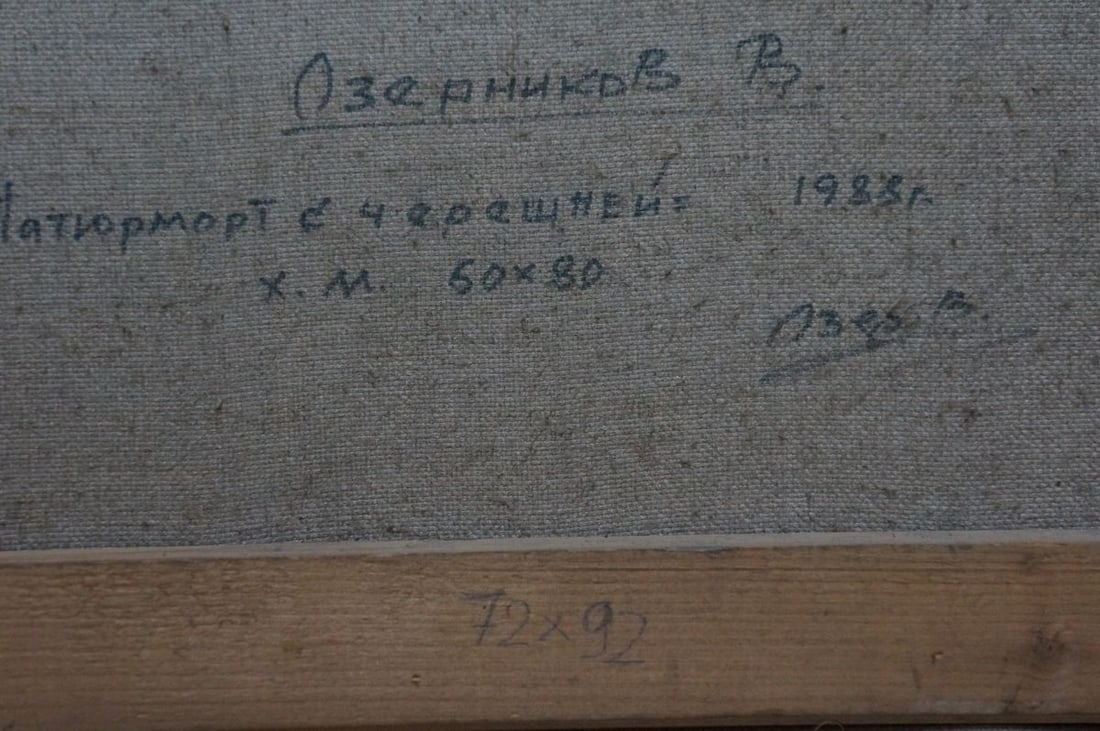 Лзерников В.
Натюрморт с черешней= 1988г.
х. м. 60х80
Лзер В.
72x92